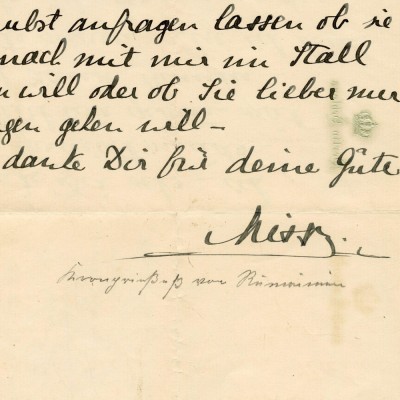 ubst anfragen lassen ob sie
nach mit mir im Stall
n will oder ob Sie lieber mer
gen gehen will –
danke Dir für deine Güte
Missy.
Kronprinzeß von Rumänien